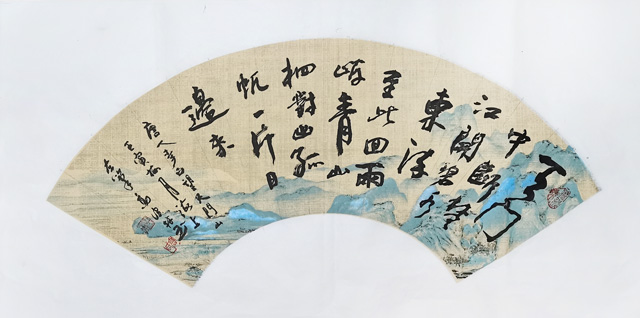 天門
中斷楚
江開碧水
東流
至此回兩
岸青山
相對出孤
帆一片日
邊來
唐人李白望天門山
壬寅梅月
左筆